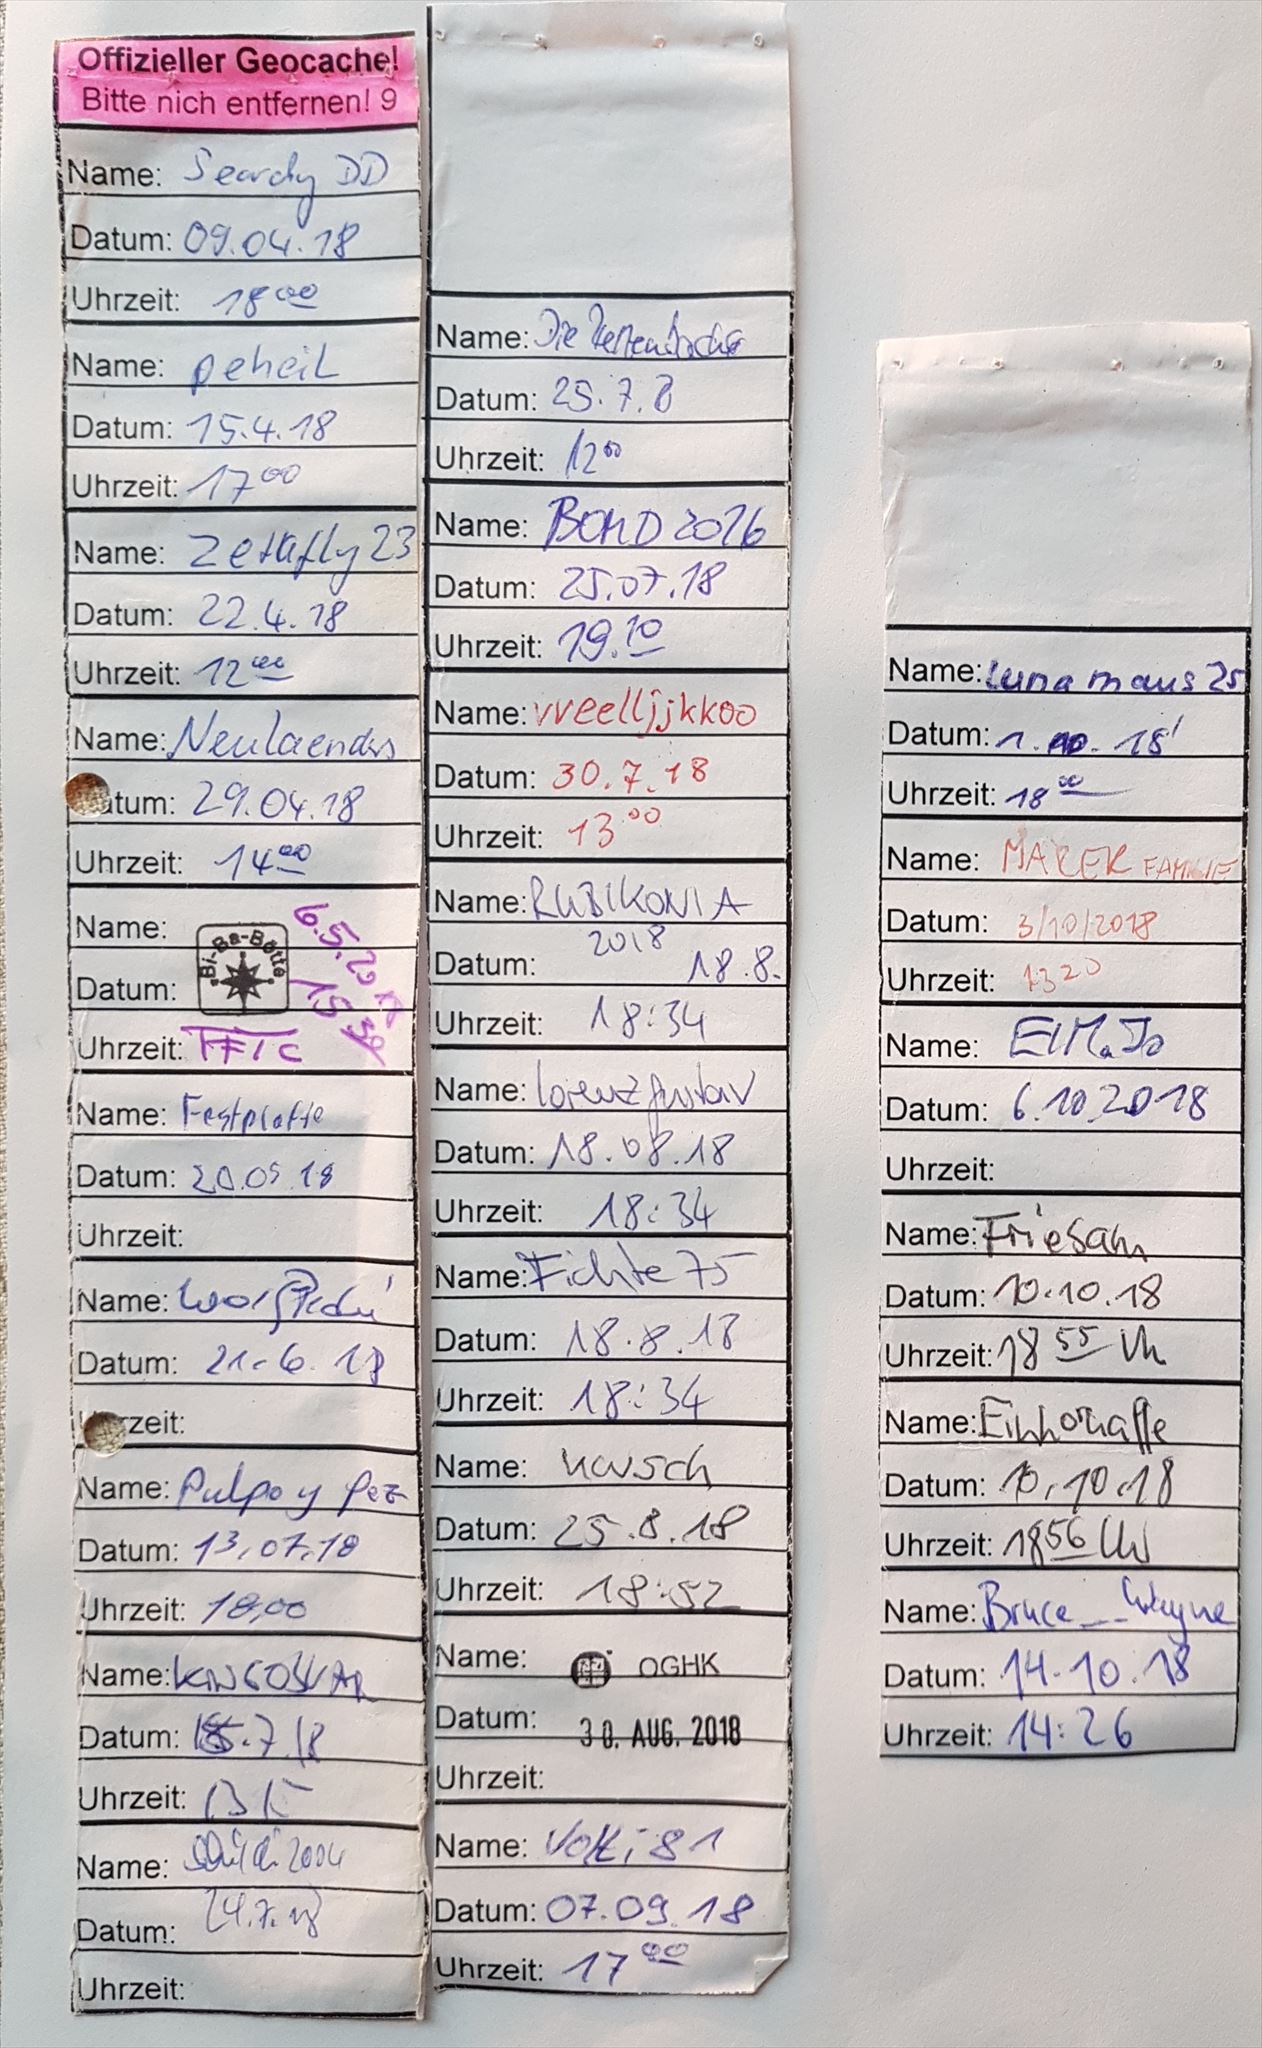 Offizieller Geocache!
Bitte nich entfernen! 9
Name: Searchy DD
Datum: 09.04.18
Uhrzeit: 18 00
Name: peheil
Datum: 15.4.18
Uhrzeit: 17 00
Name: Zettafly 23
Datum: 22.4.18
Uhrzeit: 12 00
Name: Neulaender
atum: 29.04.18
Uhrzeit: 14 00
Name:
Bi-Ba-Bötte
6.5.2018
Datum:
15 30
Uhrzeit: TFTC
Name: Festplatte
Datum: 20.05.18
Uhrzeit:
Name:
Datum: 21.6.18
rzeit:
Name: Pulpo y Pez
Datum: 13.07.18
Uhrzeit: 18,00
Name:
Datum: 15.7.18
Uhrzeit: 13 15
Name: 2004
Datum: 24.7.18
Uhrzeit:
Name: Die
Datum: 25.7.8
Uhrzeit: 12 00
Name: BOND 2016
Datum: 25.07.18
Uhrzeit: 19.10
Name: vveelljjkkoo
Datum: 30.7.18
Uhrzeit: 13 00
Name: RUBIKONIA
Datum: 2018 18.8.
Uhrzeit: 18:34
Name: lorenzgustav
Datum: 18.08.18
Uhrzeit: 18:34
Name: Fichte 75
Datum: 18.8.18
Uhrzeit: 18:34
Name:
Datum: 25.8.18
Uhrzeit: 18:52
Name: OGHK
Datum: 30. AUG. 2018
Uhrzeit:
Name: Volti 81
Datum: 07.09.18
Uhrzeit: 17 00
Name: Lunamaus25
Datum: 1.10.18
Uhrzeit: 18 00
Name: MAREK FAMILIE
Datum: 3/10/2018
Uhrzeit: 13 20
Name: ElM.Jo
Datum: 6.10.2018
Uhrzeit:
Name: Friesam
Datum: 10.10.18
Uhrzeit: 18 55 Uhr
Name: Einhoraffe
Datum: 10.10.18
Uhrzeit: 18 56 Uhr
Name: Bruce__Wayne
Datum: 14.10.18
Uhrzeit: 14:26